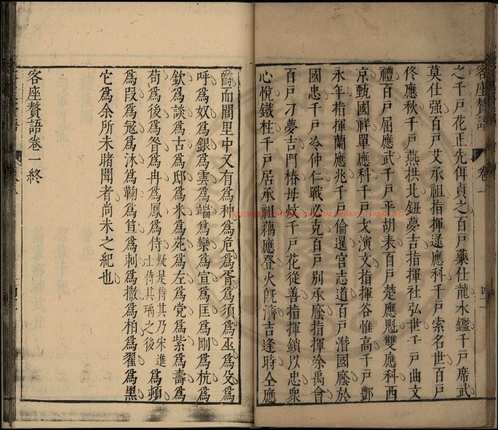 客座贅語 卷一
之千戶花正先俾貞之百戶藥仕龍水鑑千戶席武
莫仕強百戶艾承祖指揮達應科千戶索名世百戶
佟應秋千戶燕拱北鈕夢吉指揮社弘世千戶曲文
禮百戶屈應武千戶平胡耒百戶楚應魁雙應科西
京甄國祥單應科千戶戈演文指揮谷惟高千戶酆
永年指揮蘭應兆千戶倫選官志道百戶潛國慶於
國惠千戶咎仲仁戰必克百戶別承慶指揮涂禹會
百戶刁夢吉門椿母千戶花從善指揮鎖以忠衆
心悅鐵柱千戶居承祖籍應登火旣濟吉逢時仝應
爵而閭里中又有爲种爲危爲胥爲須爲巫爲爲
呼爲奴爲銀爲雲爲端爲欒爲宣爲匡爲剛爲杭爲
欽爲談爲古爲邸爲米爲苑爲左爲党爲柴爲壽爲
苟爲後爲咎爲冉爲鳳爲侍疑是侍其乃宋進士侍其瑀之後爲頓
爲段爲寃爲沐爲鞠爲笪爲刺爲撒爲柏爲翟爲黑
它爲余所未睹聞者尚未之紀也
客座贅語卷一終